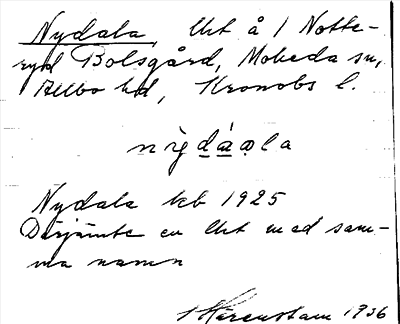 Nydala, lht å 1 Notte-
ryd Bolsgård, Moheda sn,
Allbo hd, Kronobs l.
nỳdáạla
Nydala kb 1925
Därjämte en lht med sam-
ma namn
Härenstam 1936